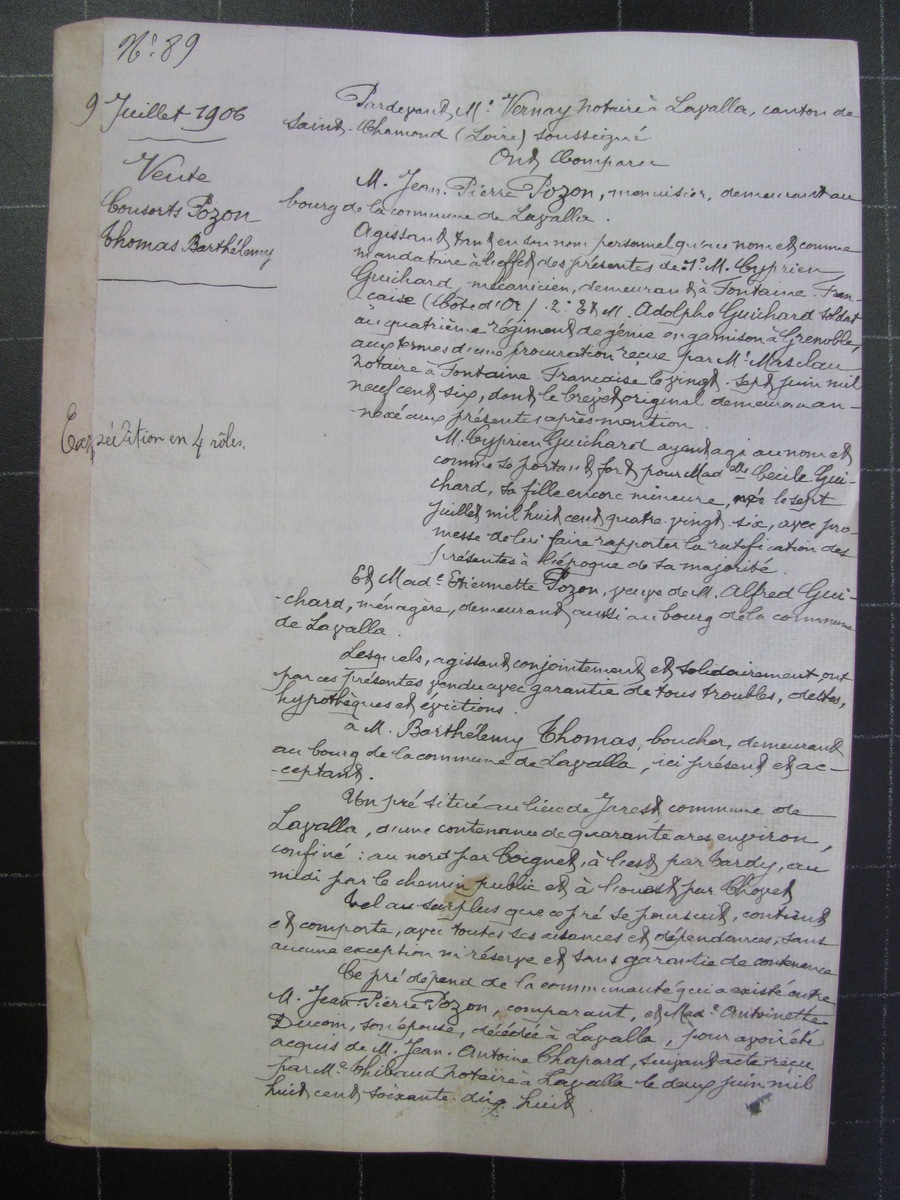 N° 89
9 Juillet 1906
Vente
Consorts Pozon
Thomas Barthélemy
Expédition en 4 rôles.
Pardevant Me Vernay notaire à Lavalla, canton de
Saint-Chamond (Loire) soussigné
Ont Comparu
M. Jean-Pierre Pozon, menuisier, demeurant au
bourg de la commune de Lavalla.
Agissant tant en son nom personnel qu'au nom et comme
mandataire à l'effet des présentes de: 1° M. Cyprien
Guichard, mécanicien, demeurant à Fontaine-Fran-
çaise (Côte d'Or). 2° Et M. Adolphe Guichard soldat
au quatrième régiment de génie en garnison à Grenoble,
aux termes d'une procuration reçue par Me Masclau
notaire à Fontaine Française le vingt-sept juin mil
neuf cent six, dont le brevet original demeurera an-
-nexé aux présentes après mention.
M. Cyprien Guichard ayant agi au nom et
comme se portant fort pour Madelle Cécile Gui-
chard, sa fille encore mineure, née le sept
juillet mil huit cent quatre-vingt-six, avec pro-
messe de lui faire rapporter la ratification des
présentes à l'époque de sa majorité.
Et Made Etiennette Pozon, veuve de M. Alfred Gui-
-chard, ménagère, demeurant aussi au bourg de la commune
de Lavalla.
Lesquels, agissant conjointement et solidairement ont
par ces présentes vendu avec garantie de tous troubles, dettes,
hypothèques et évictions.
à M. Barthélemy Thomas, boucher, demeurant
au bourg de la commune de Lavalla, ici présent et ac-
-ceptant.
Un pré situé au lieu de Jarest commune de
Lavalla, d'une contenance de quarante ares environ,
confiné: au nord par Coignet, à l'est par Tardy, au
midi par le chemin public et à l'ouest par Chovet
Tel au surplus que ce pré se poursuit, contient
et comporte, avec toutes ses aisances et dépendances, sans
aucune exception ni réserve et sans garantie de contenance
Ce pré dépend de la communauté qui a existé entre
M. Jean-Pierre Pozon, comparant, et Made Antoinette
son épouse, décédée à Lavalla, pour avoir été
acquis de M. Jean-Antoine Chapard, suivant acte reçu
par Me Thibaud notaire à Lavalla le deux juin mil
huit cent soixante-dix-huit.